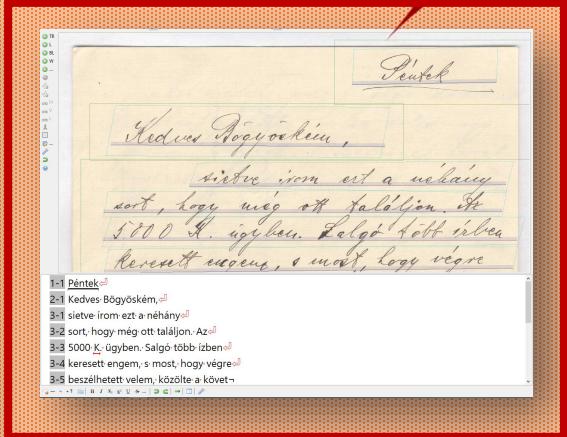 Péntek
Kedves Bögyöském,
sietve írom ezt a néhány
sort, hogy még ott találjon. Az
5000 K. ügyben. Salgó több ízben
keresett engem, s most, hogy végre
1-1 Péntek
2-1 Kedves Bögyöském,
3-1 sietve írom ezt a néhány
3-2 sort, hogy még ott találjon. Az
3-3 5000 K. ügyben. Salgó több ízben
3-4 keresett engem, s most, hogy végre
3-5 beszélhetett velem, közölte a követ¬